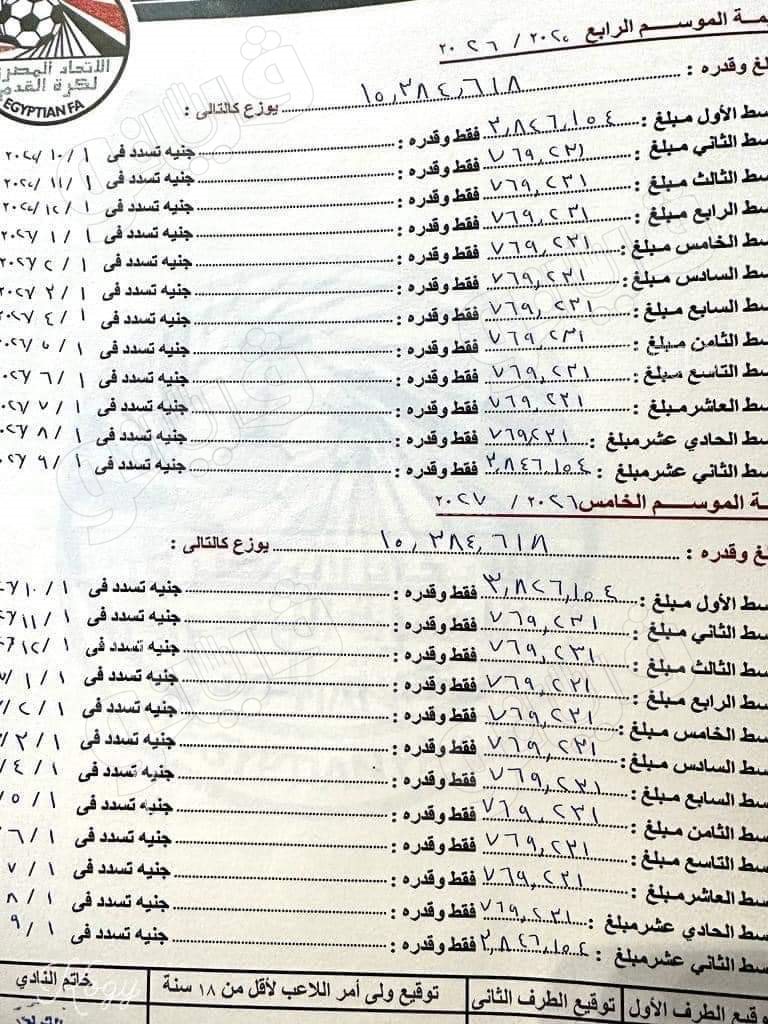 الاتحاد المصرى
لكرة القدم
EGYPTIAN FA
يمة الموسم الرابع ٢٠٢٥ / ٢٠٢٦
لغ وقدره : ١٥,٣٨٤,٦١٨ يوزع كالتالى :
سط الأول مبلغ : ٣,٨٤٦,١٥٤ فقط وقدره : جنيه تسدد فى ١ / ١٠ / ٢٠٢٥
سط الثاني مبلغ : ٧٦٩,٢٣١ فقط وقدره : جنيه تسدد فى ١ / ١١ / ٢٠٢٥
سط الثالث مبلغ : ٧٦٩,٢٣١ فقط وقدره : جنيه تسدد فى ١ / ١٢ / ٢٠٢٥
سط الرابع مبلغ : ٧٦٩,٢٣١ فقط وقدره : جنيه تسدد فى ١ / ١ / ٢٠٢٦
سط الخامس مبلغ : ٧٦٩,٢٣١ فقط وقدره : جنيه تسدد فى ١ / ٢ / ٢٠٢٦
سط السادس مبلغ : ٧٦٩,٢٣١ فقط وقدره : جنيه تسدد فى ١ / ٣ / ٢٠٢٦
سط السابع مبلغ : ٧٦٩,٢٣١ فقط وقدره : جنيه تسدد فى ١ / ٤ / ٢٠٢٦
سط الثامن مبلغ : ٧٦٩,٢٣١ فقط وقدره : جنيه تسدد فى ١ / ٥ / ٢٠٢٦
سط التاسع مبلغ : ٧٦٩,٢٣١ فقط وقدره : جنيه تسدد فى ١ / ٦ / ٢٠٢٦
سط العاشر مبلغ : ٧٦٩,٢٣١ فقط وقدره : جنيه تسدد فى ١ / ٧ / ٢٠٢٦
سط الحادي عشر مبلغ : ٧٦٩٢٣١ فقط وقدره : جنيه تسدد فى ١ / ٨ / ٢٠٢٦
سط الثاني عشر مبلغ : ٣,٨٤٦,١٥٤ فقط وقدره : جنيه تسدد فى ١ / ٩ / ٢٠٢٦
ـة الموسم الخامس ٢٠٢٦ / ٢٠٢٧
لغ وقدره : ١٥,٣٨٤,٦١٨ يوزع كالتالى :
سط الأول مبلغ : ٣,٨٤٦,١٥٤ فقط وقدره : جنيه تسدد فى ١ / ١٠ /
سط الثاني مبلغ : ٧٦٩,٢٣١ فقط وقدره : جنيه تسدد فى ١ / ١١ /
سط الثالث مبلغ : ٧٦٩,٢٣١ فقط وقدره : جنيه تسدد فى ١ / ١٢ /
سط الرابع مبلغ : ٧٦٩,٢٣١ فقط وقدره : جنيه تسدد فى ١ / ١ /
سط الخامس مبلغ : ٧٦٩,٢٣١ فقط وقدره : جنيه تسدد فى ١ / ٢ /
سط السادس مبلغ : ٧٦٩,٢٣١ فقط وقدره : جنيه تسدد فى ١ / ٣ /
سط السابع مبلغ : ٧٦٩,٢٣١ فقط وقدره : جنيه تسدد فى ١ / ٤ /
سط الثامن مبلغ : ٧٦٩,٢٣١ فقط وقدره : جنيه تسدد فى ١ / ٥ /
سط التاسع مبلغ : ٧٦٩,٢٣١ فقط وقدره : جنيه تسدد فى ١ / ٦ /
سط العاشر مبلغ : ٧٦٩,٢٣١ فقط وقدره : جنيه تسدد فى ١ / ٧
سط الحادي عشر مبلغ : ٧٦٩,٢٣١ فقط وقدره : جنيه تسدد فى ١ / ٨
سط الثاني عشر مبلغ : ٣,٨٤٦,١٥٤ فقط وقدره : جنيه تسدد فى ١ / ٩
وقيع الطرف الأول توقيع الطرف الثانى توقيع ولى أمر اللاعب لأقل من ١٨ سنة خاتم النادي